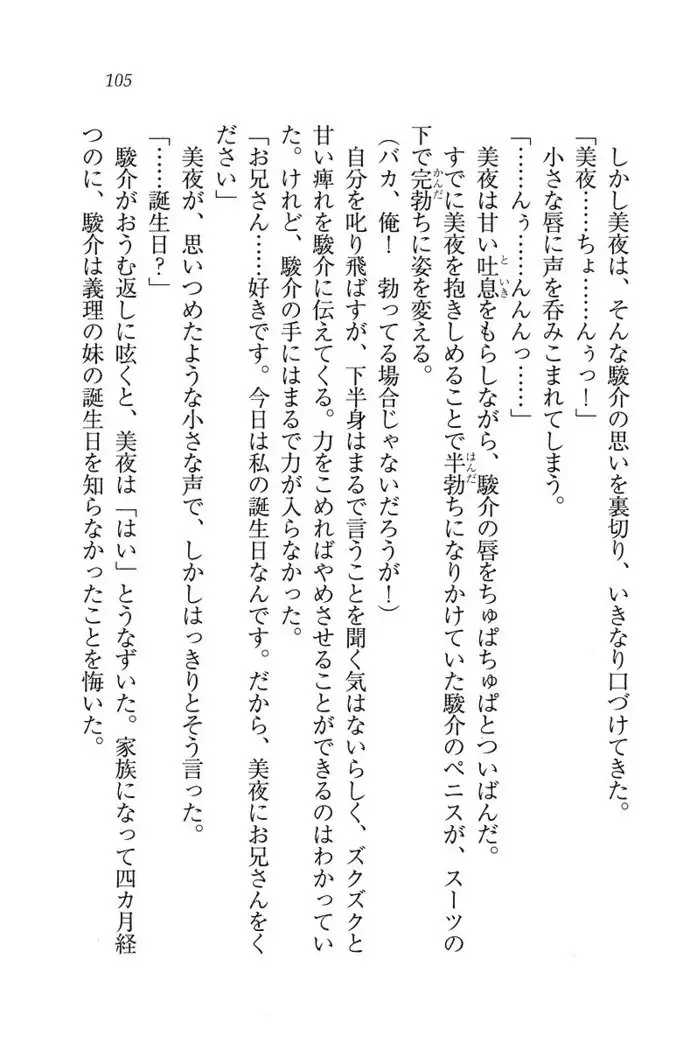 105
しかし美夜は、そんな駿介の思いを裏切り、いきなり口づけてきた。
「美夜……ちょ……んぅっ！」
小さな唇に声を呑みこまれてしまう。
「……んぅ……んんんっ……」
美夜は甘い吐息をもらしながら、駿介の唇をちゅぱちゅぱとついばんだ。
すでに美夜を抱きしめることで半勃ちになりかけていた駿介のペニスが、スーツの
下で完勃ちに姿を変える。
（バカ、俺！　勃ってる場合じゃないだろうが！）
自分を叱り飛ばすが、下半身はまるで言うことを聞く気はないらしく、ズクズクと
甘い痺れを駿介に伝えてくる。力をこめればやめさせることができるのはわかってい
た。けれど、駿介の手にはまるで力が入らなかった。
「お兄さん……好きです。今日は私の誕生日なんです。だから、美夜にお兄さんをく
ださい」
美夜が、思いつめたような小さな声で、しかしはっきりとそう言った。
「……誕生日？」
駿介がおうむ返しに呟くと、美夜は「はい」とうなずいた。家族になって四カ月経
つのに、駿介は義理の妹の誕生日を知らなかったことを悔いた。